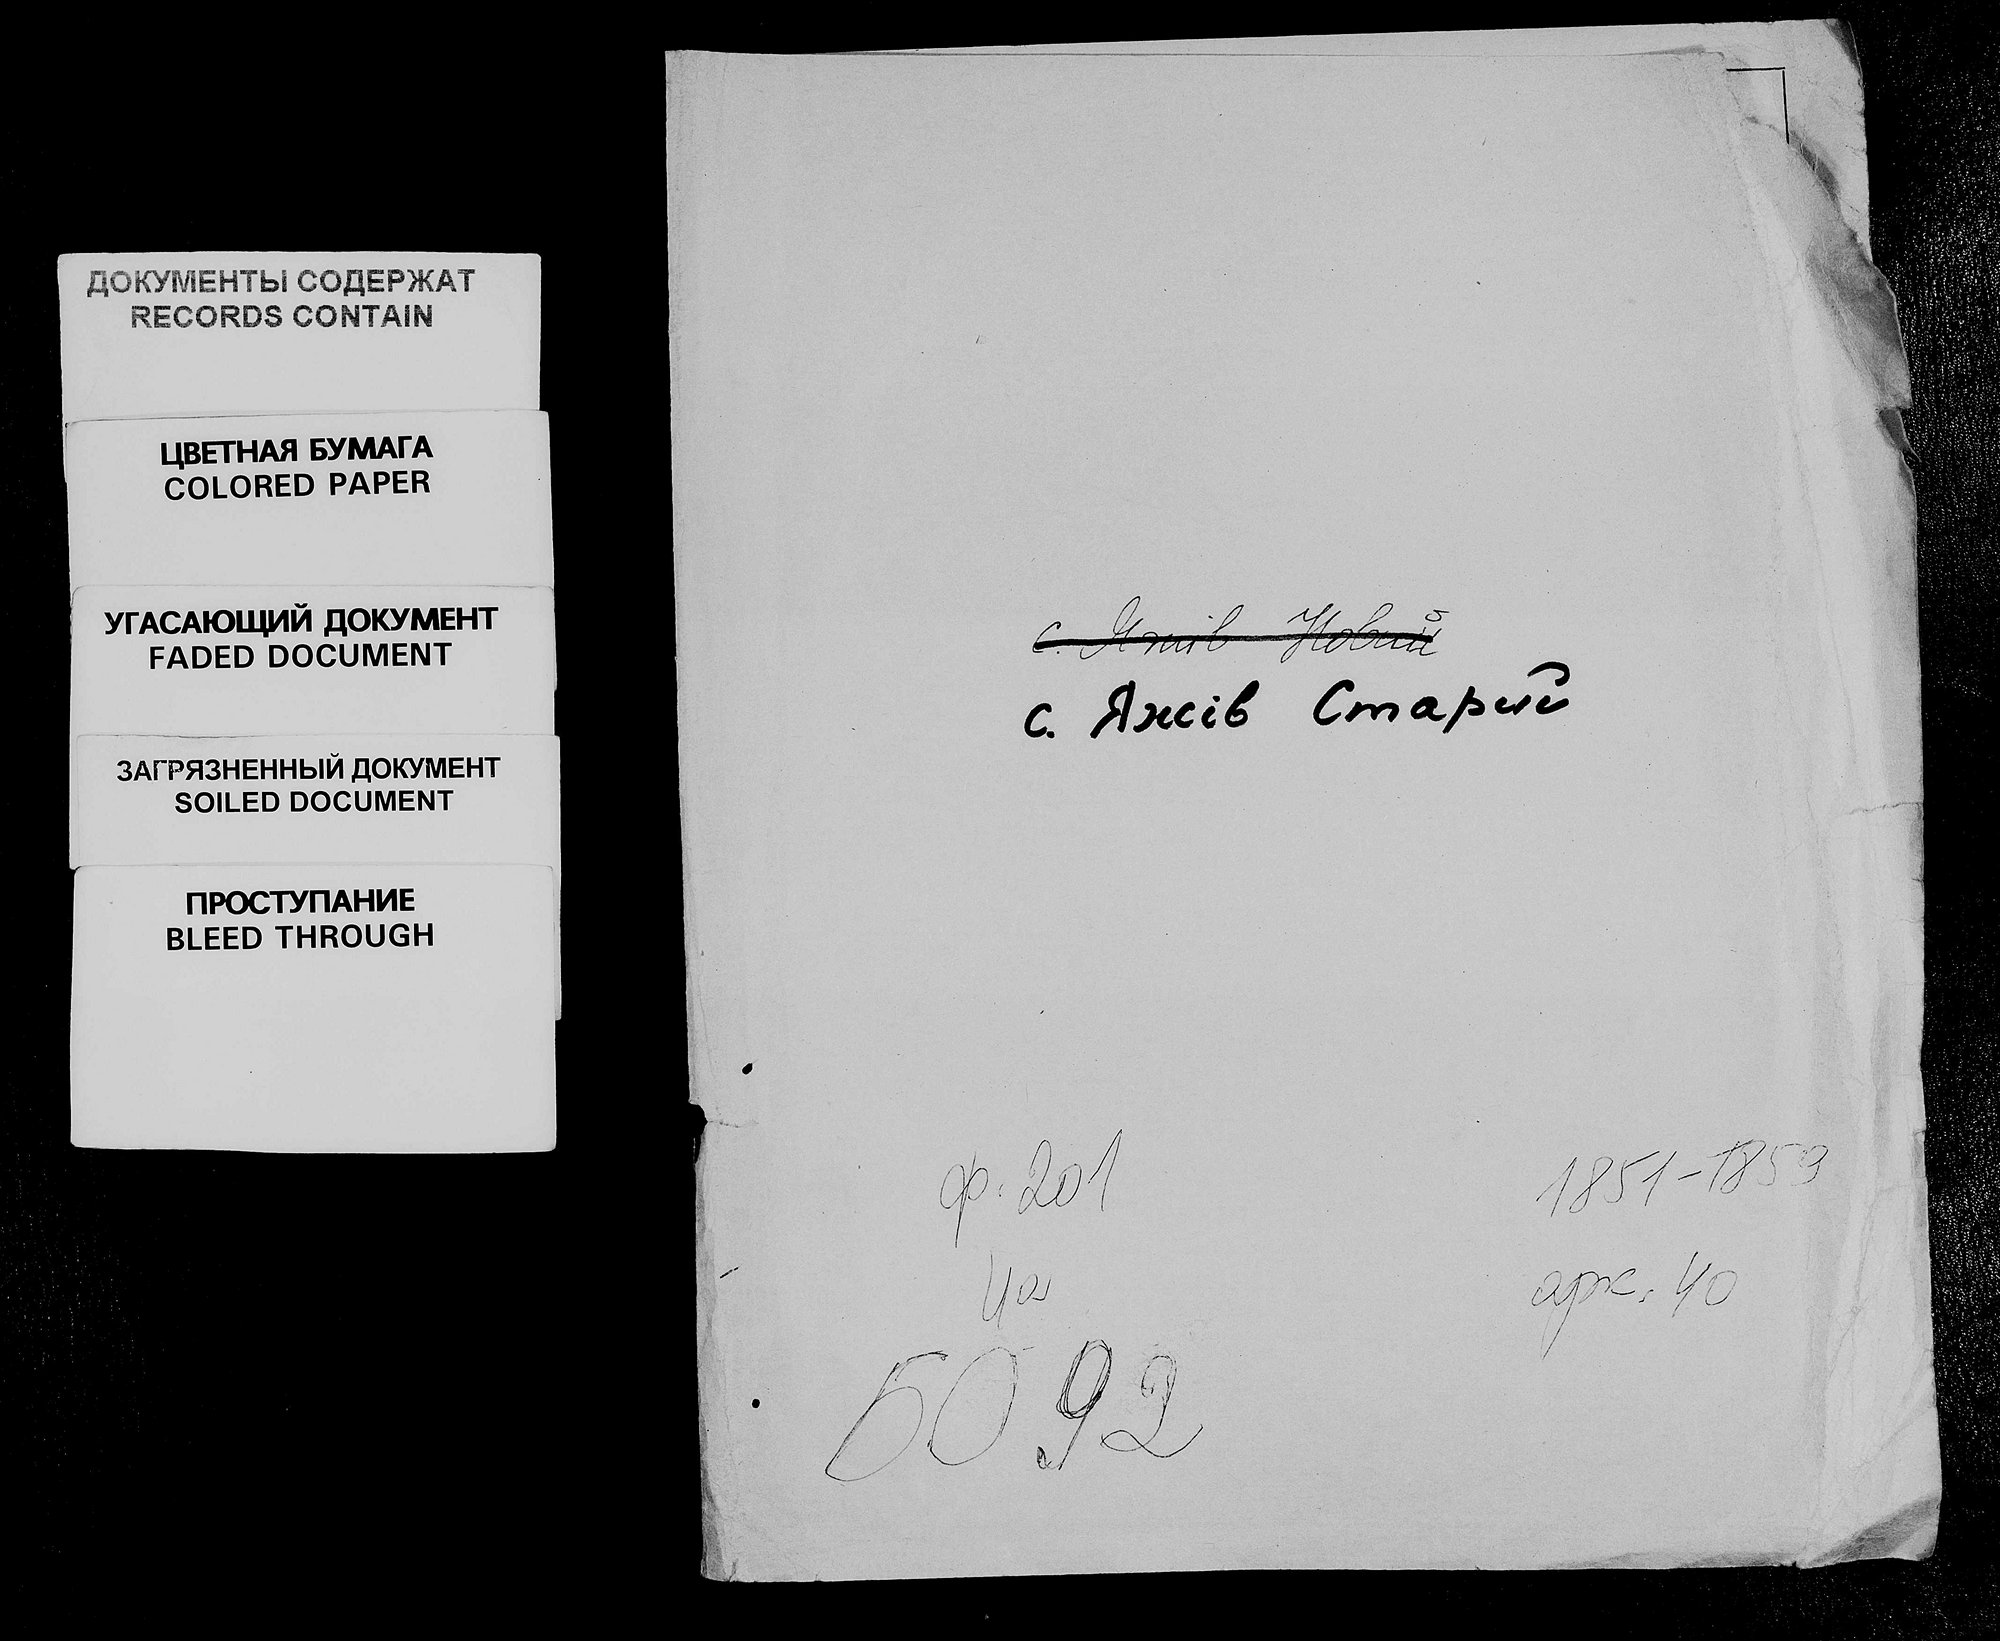 ДОКУМЕНТЫ СОДЕРЖАТ
RECORDS CONTAIN
ЦВЕТНАЯ БУМАГА
COLORED PAPER
УГАСАЮЩИЙ ДОКУМЕНТ
FADED DOCUMENT
ЗАГРЯЗНЕННЫЙ ДОКУМЕНТ
SOILED DOCUMENT
ПРОСТУПАНИЕ
BLEED THROUGH
с. Яжів Новий
с. Яжів Старий
ф. 201
4а
5092
1851-1859
арк. 40